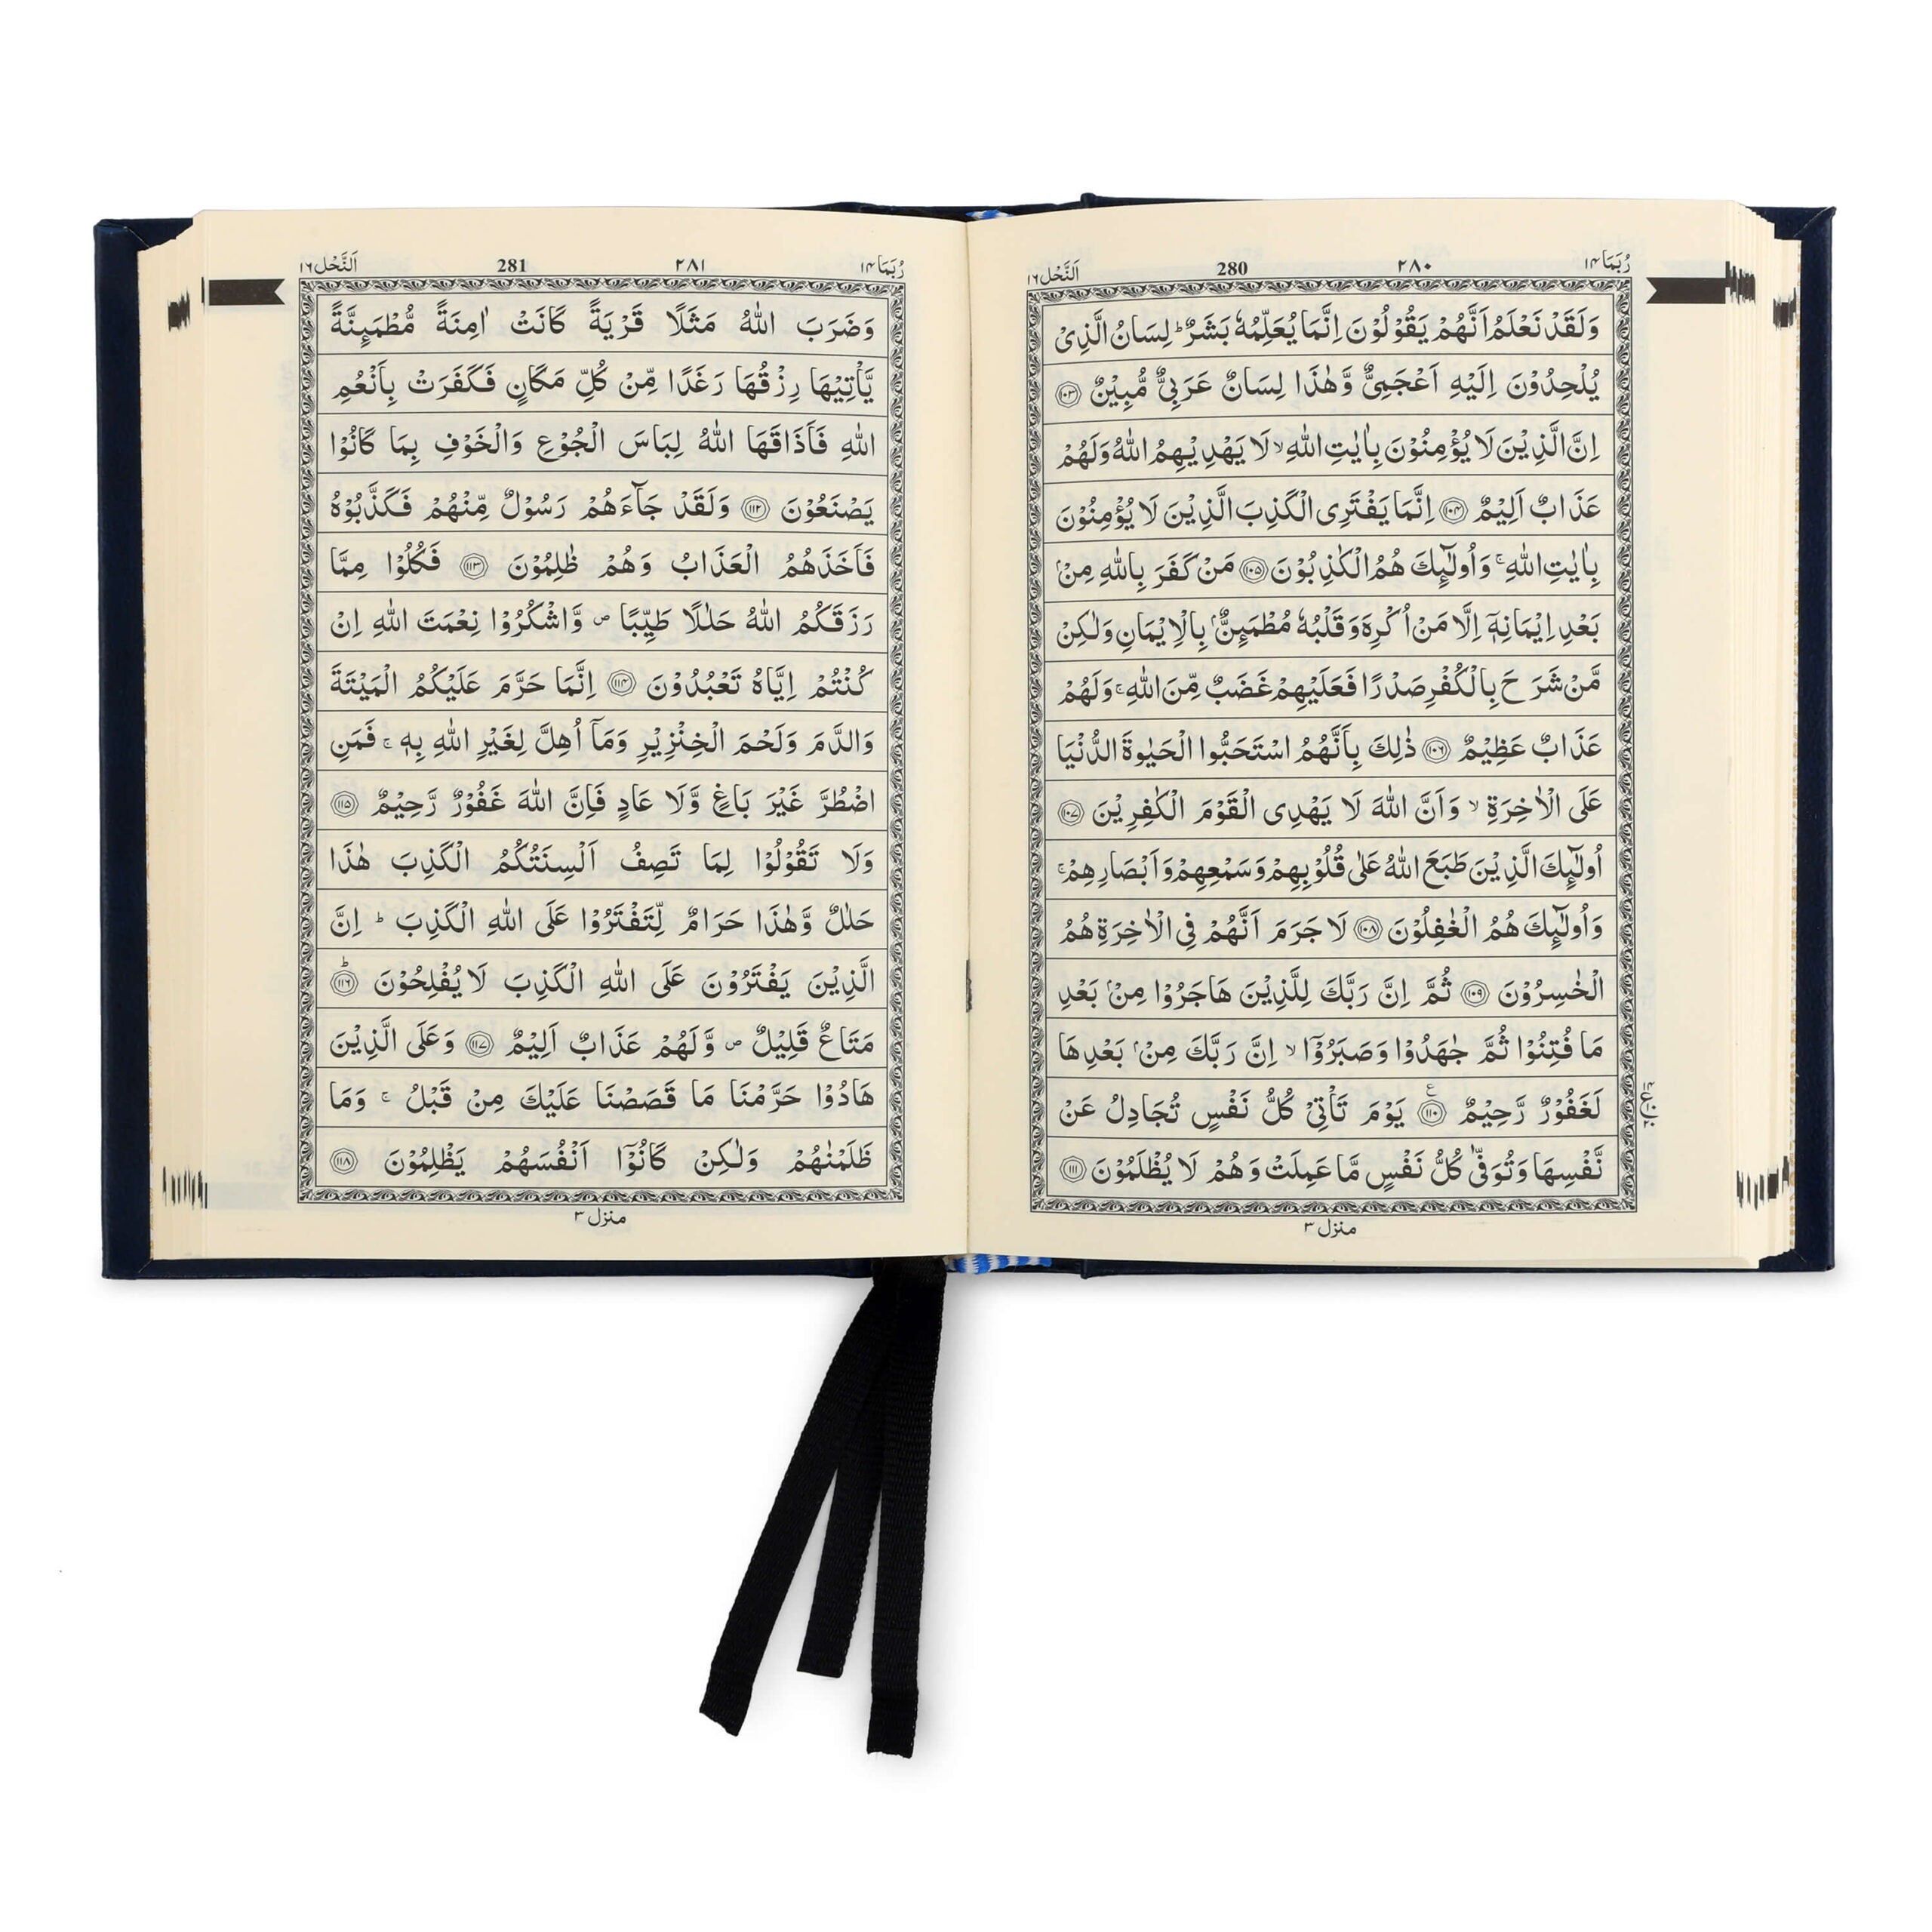 رُبَمَا ١٤ ٢٨٠ 280 اَلنَّحْل ١٦
وَلَقَدْ نَعْلَمُ اَنَّهُمْ يَقُوْلُوْنَ اِنَّمَا يُعَلِّمُهٗ بَشَرٌ ؕ لِسَانُ الَّذِیْ
يُلْحِدُوْنَ اِلَيْهِ اَعْجَمِیٌّ وَّهٰذَا لِسَانٌ عَرَبِیٌّ مُّبِيْنٌ ۝١٠٣
اِنَّ الَّذِيْنَ لَا يُؤْمِنُوْنَ بِاٰيٰتِ اللّٰهِ ۙ لَا يَهْدِيْهِمُ اللّٰهُ وَلَهُمْ
عَذَابٌ اَلِيْمٌ ۝١٠٤ اِنَّمَا يَفْتَرِی الْكَذِبَ الَّذِيْنَ لَا يُؤْمِنُوْنَ
بِاٰيٰتِ اللّٰهِ ۚ وَاُولٰٓئِكَ هُمُ الْكٰذِبُوْنَ ۝١٠٥ مَنْ كَفَرَ بِاللّٰهِ مِنْۢ
بَعْدِ اِيْمَانِهٖۤ اِلَّا مَنْ اُكْرِهَ وَقَلْبُهٗ مُطْمَئِنٌّۢ بِالْاِيْمَانِ وَلٰكِنْ
مَّنْ شَرَحَ بِالْكُفْرِ صَدْرًا فَعَلَيْهِمْ غَضَبٌ مِّنَ اللّٰهِ ۚ وَلَهُمْ
عَذَابٌ عَظِيْمٌ ۝١٠٦ ذٰلِكَ بِاَنَّهُمُ اسْتَحَبُّوا الْحَيٰوةَ الدُّنْيَا
عَلَی الْاٰخِرَةِ ۙ وَاَنَّ اللّٰهَ لَا يَهْدِی الْقَوْمَ الْكٰفِرِيْنَ ۝١٠٧
اُولٰٓئِكَ الَّذِيْنَ طَبَعَ اللّٰهُ عَلٰی قُلُوْبِهِمْ وَسَمْعِهِمْ وَاَبْصَارِهِمْ ۚ
وَاُولٰٓئِكَ هُمُ الْغٰفِلُوْنَ ۝١٠٨ لَا جَرَمَ اَنَّهُمْ فِی الْاٰخِرَةِ هُمُ
الْخٰسِرُوْنَ ۝١٠٩ ثُمَّ اِنَّ رَبَّكَ لِلَّذِيْنَ هَاجَرُوْا مِنْۢ بَعْدِ
مَا فُتِنُوْا ثُمَّ جٰهَدُوْا وَصَبَرُوْۤا ۙ اِنَّ رَبَّكَ مِنْۢ بَعْدِهَا
لَغَفُوْرٌ رَّحِيْمٌ ۝١١٠ يَوْمَ تَاْتِیْ كُلُّ نَفْسٍ تُجَادِلُ عَنْ
نَّفْسِهَا وَتُوَفّٰی كُلُّ نَفْسٍ مَّا عَمِلَتْ وَهُمْ لَا يُظْلَمُوْنَ ۝١١١
منزل ٣
رُبَمَا ١٤ ٢٨١ 281 اَلنَّحْل ١٦
وَضَرَبَ اللّٰهُ مَثَلًا قَرْيَةً كَانَتْ اٰمِنَةً مُّطْمَئِنَّةً
يَّاْتِيْهَا رِزْقُهَا رَغَدًا مِّنْ كُلِّ مَكَانٍ فَكَفَرَتْ بِاَنْعُمِ
اللّٰهِ فَاَذَاقَهَا اللّٰهُ لِبَاسَ الْجُوْعِ وَالْخَوْفِ بِمَا كَانُوْا
يَصْنَعُوْنَ ۝١١٢ وَلَقَدْ جَآءَهُمْ رَسُوْلٌ مِّنْهُمْ فَكَذَّبُوْهُ
فَاَخَذَهُمُ الْعَذَابُ وَهُمْ ظٰلِمُوْنَ ۝١١٣ فَكُلُوْا مِمَّا
رَزَقَكُمُ اللّٰهُ حَلٰلًا طَيِّبًا ص وَّاشْكُرُوْا نِعْمَتَ اللّٰهِ اِنْ
كُنْتُمْ اِيَّاهُ تَعْبُدُوْنَ ۝١١٤ اِنَّمَا حَرَّمَ عَلَيْكُمُ الْمَيْتَةَ
وَالدَّمَ وَلَحْمَ الْخِنْزِيْرِ وَمَاۤ اُهِلَّ لِغَيْرِ اللّٰهِ بِهٖ ۚ فَمَنِ
اضْطُرَّ غَيْرَ بَاغٍ وَّلَا عَادٍ فَاِنَّ اللّٰهَ غَفُوْرٌ رَّحِيْمٌ ۝١١٥
وَلَا تَقُوْلُوْا لِمَا تَصِفُ اَلْسِنَتُكُمُ الْكَذِبَ هٰذَا
حَلٰلٌ وَّهٰذَا حَرَامٌ لِّتَفْتَرُوْا عَلَی اللّٰهِ الْكَذِبَ ؕ اِنَّ
الَّذِيْنَ يَفْتَرُوْنَ عَلَی اللّٰهِ الْكَذِبَ لَا يُفْلِحُوْنَ ؕ ۝١١٦
مَتَاعٌ قَلِيْلٌ ص وَّلَهُمْ عَذَابٌ اَلِيْمٌ ۝١١٧ وَعَلَی الَّذِيْنَ
هَادُوْا حَرَّمْنَا مَا قَصَصْنَا عَلَيْكَ مِنْ قَبْلُ ۚ وَمَا
ظَلَمْنٰهُمْ وَلٰكِنْ كَانُوْۤا اَنْفُسَهُمْ يَظْلِمُوْنَ ۝١١٨
منزل ٣